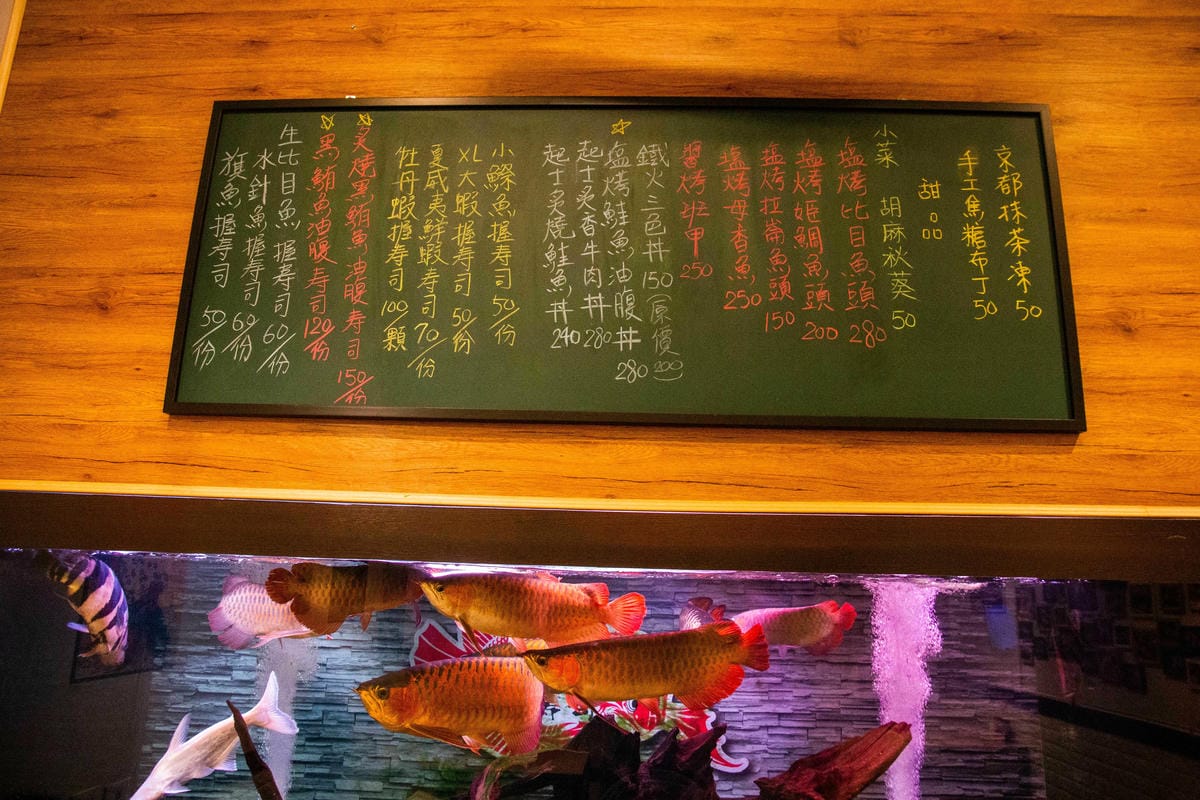 京都抹茶凍 50
手工焦糖布丁 50
甜品
小菜 胡麻秋葵 50
塩烤比目魚頭 280
塩烤姫鯛魚頭 200
塩烤拉崙魚頭 150
塩烤母香魚 250
醬烤班甲 250
鐵火三色丼 150 (原價200)
塩烤鮭魚油腹丼 280
起士炙香牛肉丼 280
起士炙燒鮭魚丼 240
小鰶魚握寿司 50/份
XL大蝦握寿司 50/份
夏威夷鮮蝦寿司 70/份
牡丹蝦握寿司 100/顆
炙燒黑鮪魚油腹寿司 150/份
黑鮪魚油腹寿司 120/份
生比目魚握寿司 60/份
水針魚握寿司 60/份
旗魚握寿司 50/份